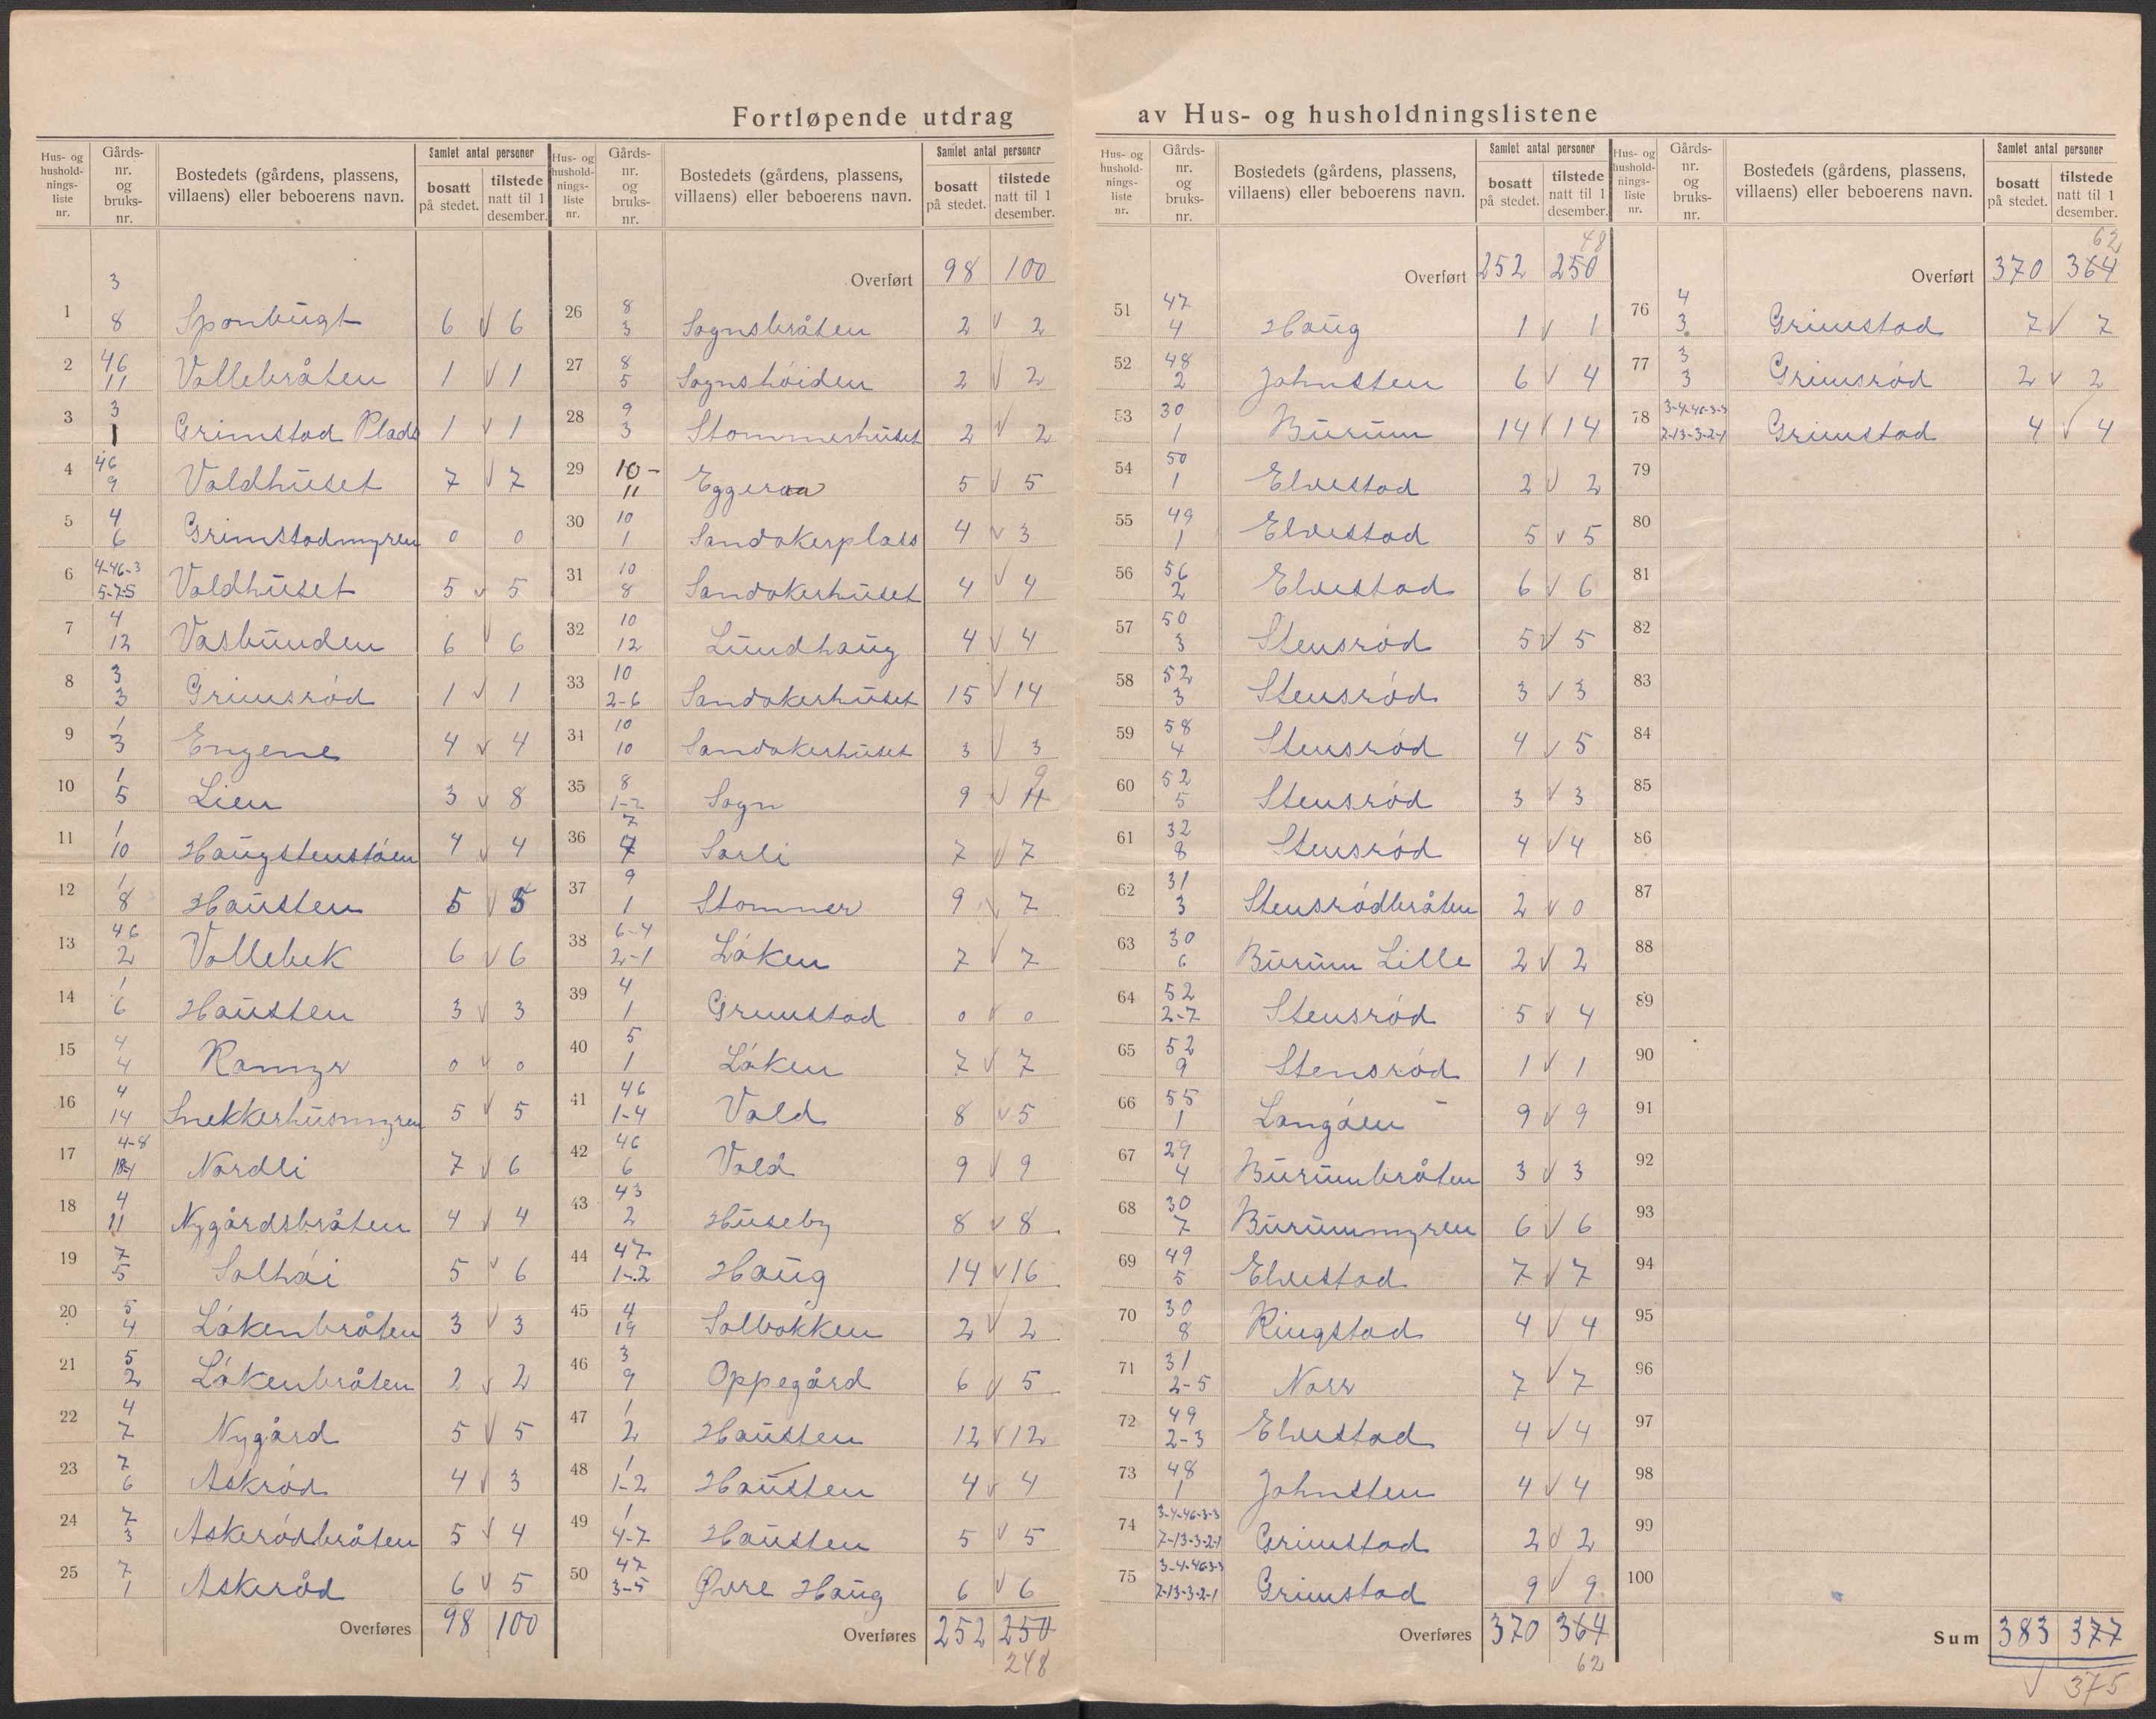 Fortløpende utdrag av Hus- og husholdningslistene
Hus- og husholdnings-liste nr. | Gårds-nr. og bruks-nr. | Bostedets (gårdens, plassens, villaens) eller beboerens navn. | Samlet antal personer | bosatt på stedet. | tilstede natt til 1 desember.
1 3 8 Sponbugt 6 v 6
2 46 11 Vollebråten 1 v 1
3 3 1 Grimstad Plads 1 v 1
4 46 9 Voldhuset 7 v 7
5 4 6 Grimstadmyren 0 0
6 4-46-3 5-7-5 Voldhuset 5 v 5
7 4 12 Vasbunden 6 v 6
8 3 3 Grimsrød 1 v 1
9 1 3 Engene 4 v 4
10 1 5 Lien 3 v 8
11 1 10 Haugstenstøen 4 v 4
12 1 8 Hausten 5 v 5
13 46 2 Vollebek 6 v 6
14 1 6 Hausten 3 v 3
15 4 4 Ramyr 0 v 0
16 4 14 Snekkerhusmyren 5 v 5
17 4-8 Nordli 7 v 6
18 4 11 Nygårdsbråten 4 v 4
19 7 5 Solhøi 5 v 6
20 5 4 Løkenbråten 3 v 3
21 5 2 Løkenbråten 2 v 2
22 4 7 Nygård 5 v 5
23 7 6 Askrød 4 v 3
24 7 3 Askerødbråten 5 v 4
25 7 1 Askerød 6 v 5
Overføres 98 100
Hus- og husholdnings-liste nr. | Gårds-nr. og bruks-nr. | Bostedets (gårdens, plassens, villaens) eller beboerens navn. | Samlet antal personer | bosatt på stedet. | tilstede natt til 1 desember.
Overført 98 100
26 8 3 Sognsbråten 2 v 2
27 8 5 Sognshøiden 2 v 2
28 9 3 Stommerhuset 2 v 2
29 10- 11 Eggeraa 5 v 5
30 10 1 Sandakerplass 4 v 3
31 10 8 Sandakerhuset 4 v 4
32 10 12 Lundhaug 4 v 4
33 10 2-6 Sandakerhuset 15 v 14
34 10 10 Sandakerhuset 3 v 3
35 8 1-2 Sogn 9 v 11 9
36 7 4 Sørli 7 v 7
37 9 1 Stommer 9 v 7
38 6-4 2-1 Løken 7 v 7
39 4 1 Grimstad 0 v 0
40 5 1 Løken 7 v 7
41 46 1-4 Vold 8 v 5
42 46 6 Vold 9 v 9
43 43 2 Huseby 8 v 8
44 47 1-2 Haug 14 v 16
45 4 19 Solbakken 2 v 2
46 3 9 Oppegård 6 v 5
47 1 2 Hausten 12 v 12
48 1 1-2 Hausten 4 v 4
49 1 4-7 Hausten 5 v 5
50 47 3-5 Øvre Haug 6 v 6
Overføres 252 250
248
Hus- og husholdnings-liste nr. | Gårds-nr. og bruks-nr. | Bostedets (gårdens, plassens, villaens) eller beboerens navn. | Samlet antal personer | bosatt på stedet. | tilstede natt til 1 desember.
48
Overført 252 250
51 47 4 Haug 1 v 1
52 48 2 Johnsten 6 v 4
53 30 1 Burum 14 v 14
54 50 1 Elvestad 2 v 2
55 49 1 Elvestad 5 v 5
56 56 2 Elvestad 6 v 6
57 50 3 Stensrød 5 v 5
58 52 3 Stensrød 3 v 3
59 58 4 Stensrød 4 v 5
60 52 5 Stensrød 3 v 3
61 32 8 Stensrød 4 v 4
62 31 3 Stensrødbråten 2 v 0
63 30 6 Burum Lille 2 v 2
64 52 2-7 Stensrød 5 v 4
65 52 9 Stensrød 1 v 1
66 55 1 Langøen 9 v 9
67 29 4 Burumbråten 3 v 3
68 30 7 Burummyren 6 v 6
69 49 5 Elvestad 7 v 7
70 30 8 Ringstad 4 v 4
71 31 2-5 Norr 7 v 7
72 49 2-3 Elvestad 4 v 4
73 48 1 Johnsten 4 v 4
74 3-4-46-3-3 7-13-3-2-1 Grimstad 2 v 2
75 3-4-46-3-3 7-13-3-2-1 Grimstad 9 v 9
Overføres 370 364
62
Hus- og husholdnings-liste nr. | Gårds-nr. og bruks-nr. | Bostedets (gårdens, plassens, villaens) eller beboerens navn. | Samlet antal personer | bosatt på stedet. | tilstede natt til 1 desember.
62
Overført 370 364
76 4 3 Grimstad 7 v 7
77 3 3 Grimsrød 2 v 2
78 3-4-46-3-3 7-13-3-2-1 Grimstad 4 v 4
79
80
81
82
83
84
85
86
87
88
89
90
91
92
93
94
95
96
97
98
99
100
Sum 383 377
v 375